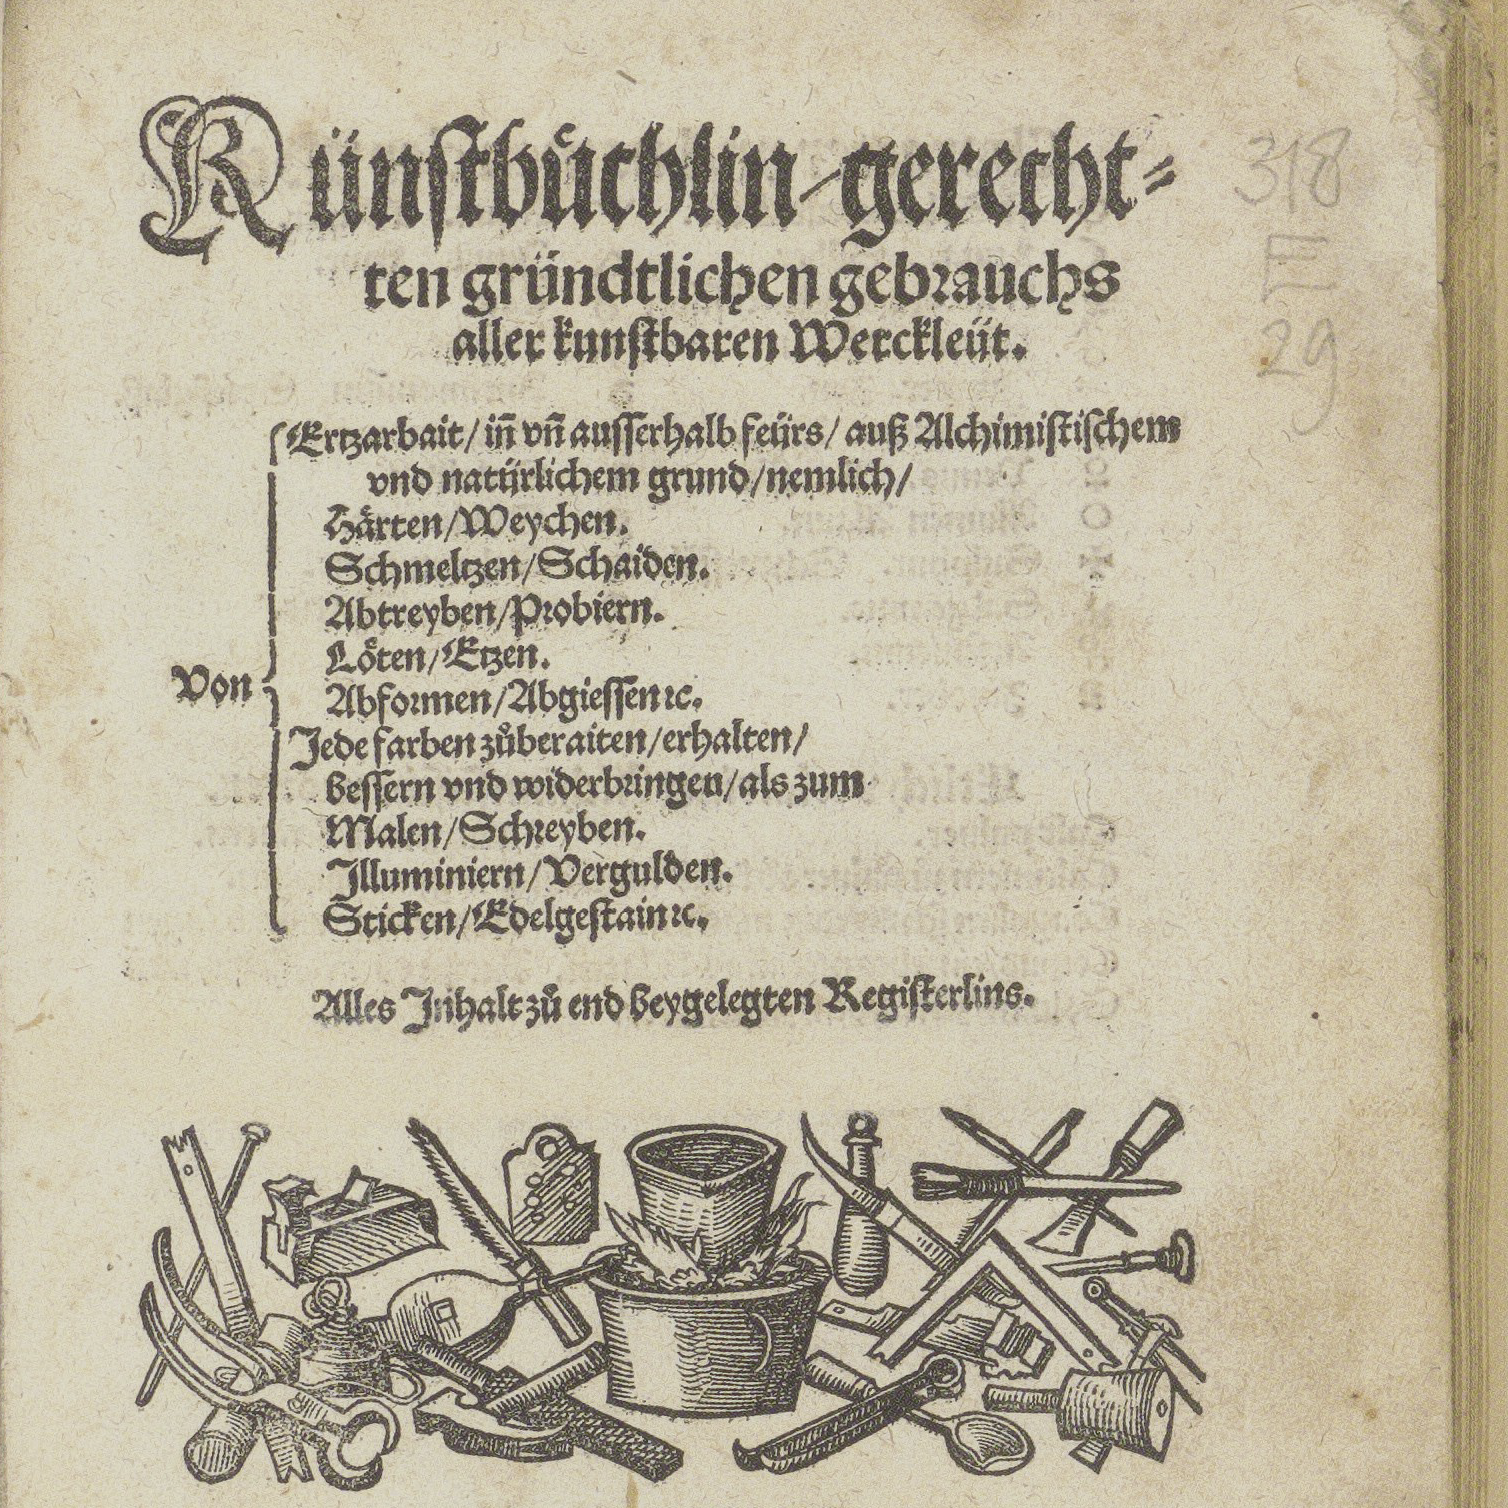 Künstbuͤchlin / gerecht⸗
ten gründtlichen gebrauchs
aller kunstbaren Werckleüt.
318
E
29
Ertzarbait / in̄ vn̄ ausserhalb feürs / auß Alchimistischem
vnd natürlichem grund / nemlich /
Haͤrten / Weychen.
Schmeltzen / Schaiden.
Abtreyben / Probiern.
Loͤten / Etzen.
Von
Abformen / Abgiessen ꝛc.
Jede farben zuͦberaiten / erhalten /
bessern vnd widerbringen / als zum
Malen / Schreyben.
Illuminiern / Vergulden.
Sticken / Edelgestain ꝛc.
Alles Inhalt zuͦ end beygelegten Registerlins.